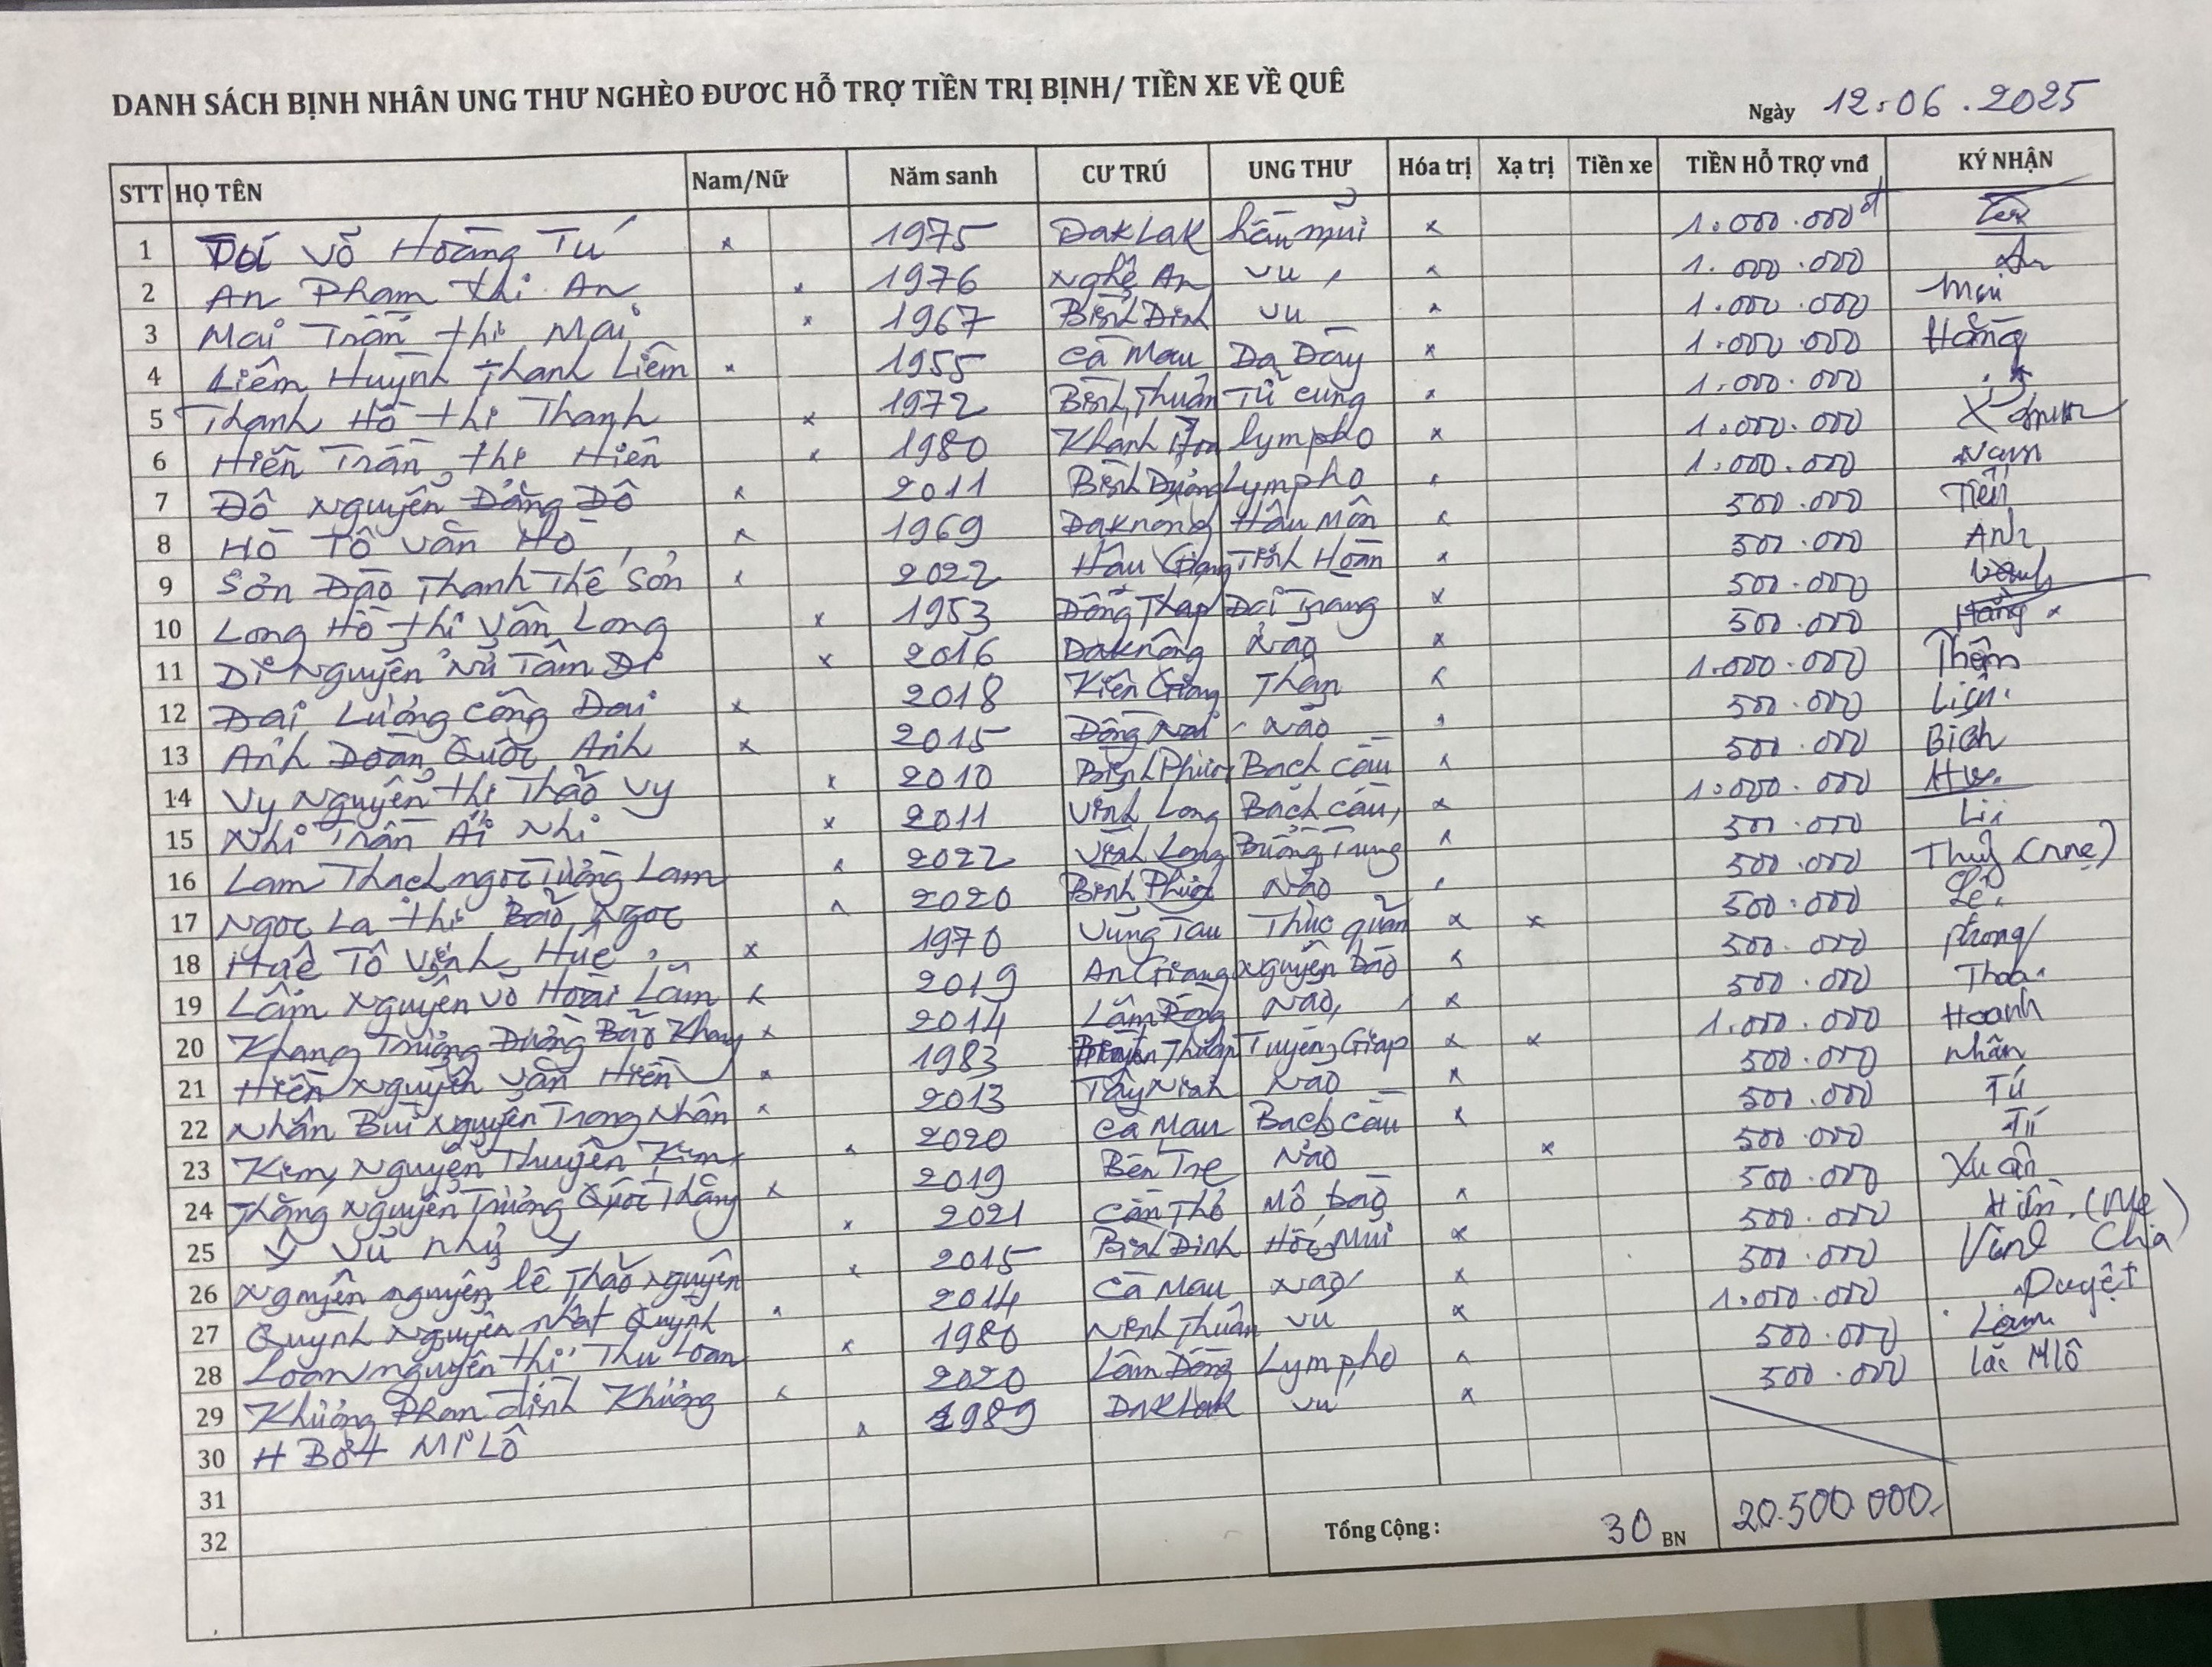 DANH SÁCH BỊNH NHÂN UNG THƯ NGHÈO ĐƯƠC HỖ TRỢ TIỀN TRỊ BỊNH/ TIỀN XE VỀ QUÊ
Ngày 12.06.2025
STT HỌ TÊN Nam/Nữ Năm sanh CƯ TRÚ UNG THƯ Hóa trị Xạ trị Tiền xe TIỀN HỖ TRỢ vnđ KÝ NHẬN
1 Võ Hoàng Tú x 1975 DakLak hầu mũi x 1.000.000đ
2 An Phạm thị An x 1976 Nghệ An vú x 1.000.000 An
3 Mai Trần thị Mai x 1967 Bình Định vú x 1.000.000 Mai
4 Liêm Huỳnh Thanh Liêm x 1955 Cà Mau Dạ Dày x 1.000.000 Hằng
5 Thanh Hồ thị Thanh x 1972 Bình Thuận Tử cung x 1.000.000
6 Hiền Trần thị Hiền x 1980 Khánh Hòa lympho x 1.000.000
7 Đô Nguyễn Đăng Đô x 2011 Bình Dương Lympho x 1.000.000 Nam
8 Hò Tô Văn Hò x 1969 Daknong Hậu Môn x 500.000 Tiền
9 Sơn Đào Thanh Thế Sơn x 2022 Hậu Giang Tinh Hoàn x 500.000 Anh
10 Long Hồ thị Vân Long x 1953 Đồng Tháp Đại Tràng x 500.000
11 Di Nguyễn Nữ Tâm Di x 2016 Daknông Não x 500.000 Hằng x
12 Đại Lương Công Đại x 2018 Kiên Giang Thận x 1.000.000 Thêm
13 Anh Đoàn Quốc Anh x 2015 Đồng Nai Não x 500.000 Liên
14 Vy Nguyễn thị Thảo Vy x 2010 Bình Phước Bạch cầu x 500.000 Bích
15 Nhi Trần Ái Nhi x 2011 Vĩnh Long Bạch cầu x 1.000.000
16 Lam Thạch ngọc Tường Lam x 2022 Vĩnh Long Buồng Trứng x 500.000
17 Ngọc La thị Bảo Ngọc x 2020 Bình Phước Não x 500.000 Thủy (mẹ)
18 Huê Tô Vịnh Huê x 1970 Vũng Tàu Thực quản x x 500.000
19 Lâm Nguyễn Võ Hoài Lâm x 2019 An Giang Nguyên bào x 500.000 Phong
20 Khang Trương Dương Bảo Khang x 2014 Lâm Đồng Não x 500.000 Thoa
21 Hiền Nguyễn Văn Hiền x 1983 Thuận Tuyến Giáp x x 1.000.000 Hoanh
22 Nhân Bùi Nguyễn Trọng Nhân x 2013 Tây Ninh Não x 500.000 Nhân
23 Kim Nguyễn Thuyên Kim x 2020 Cà Mau Bạch cầu x 500.000 Tú
24 Thắng Nguyễn Trương Quốc Thắng x 2019 Bến Tre Não x 500.000
25 Ý Vũ Như Ý x 2021 Cần Thơ Mô bào x 500.000 Xuân
26 Nguyên nguyễn lê Thảo Nguyên x 2015 Bình Định Hốc Mũi x 500.000 Hiền (Mẹ)
27 Quỳnh Nguyễn nhật Quỳnh x 2014 Cà Mau Não x 500.000 Cha
28 Loan nguyễn thị Thu Loan x 1980 Ninh Thuận Vú x 1.000.000 Duyệt
29 Khương Phan đình Khương x 2020 Lâm Đồng Lympho x 500.000
30 H Bơt MLÔ x 1989 DakLak Vú x 500.000 MLô
31
32
Tổng Cộng : 30 BN 20.500.000.